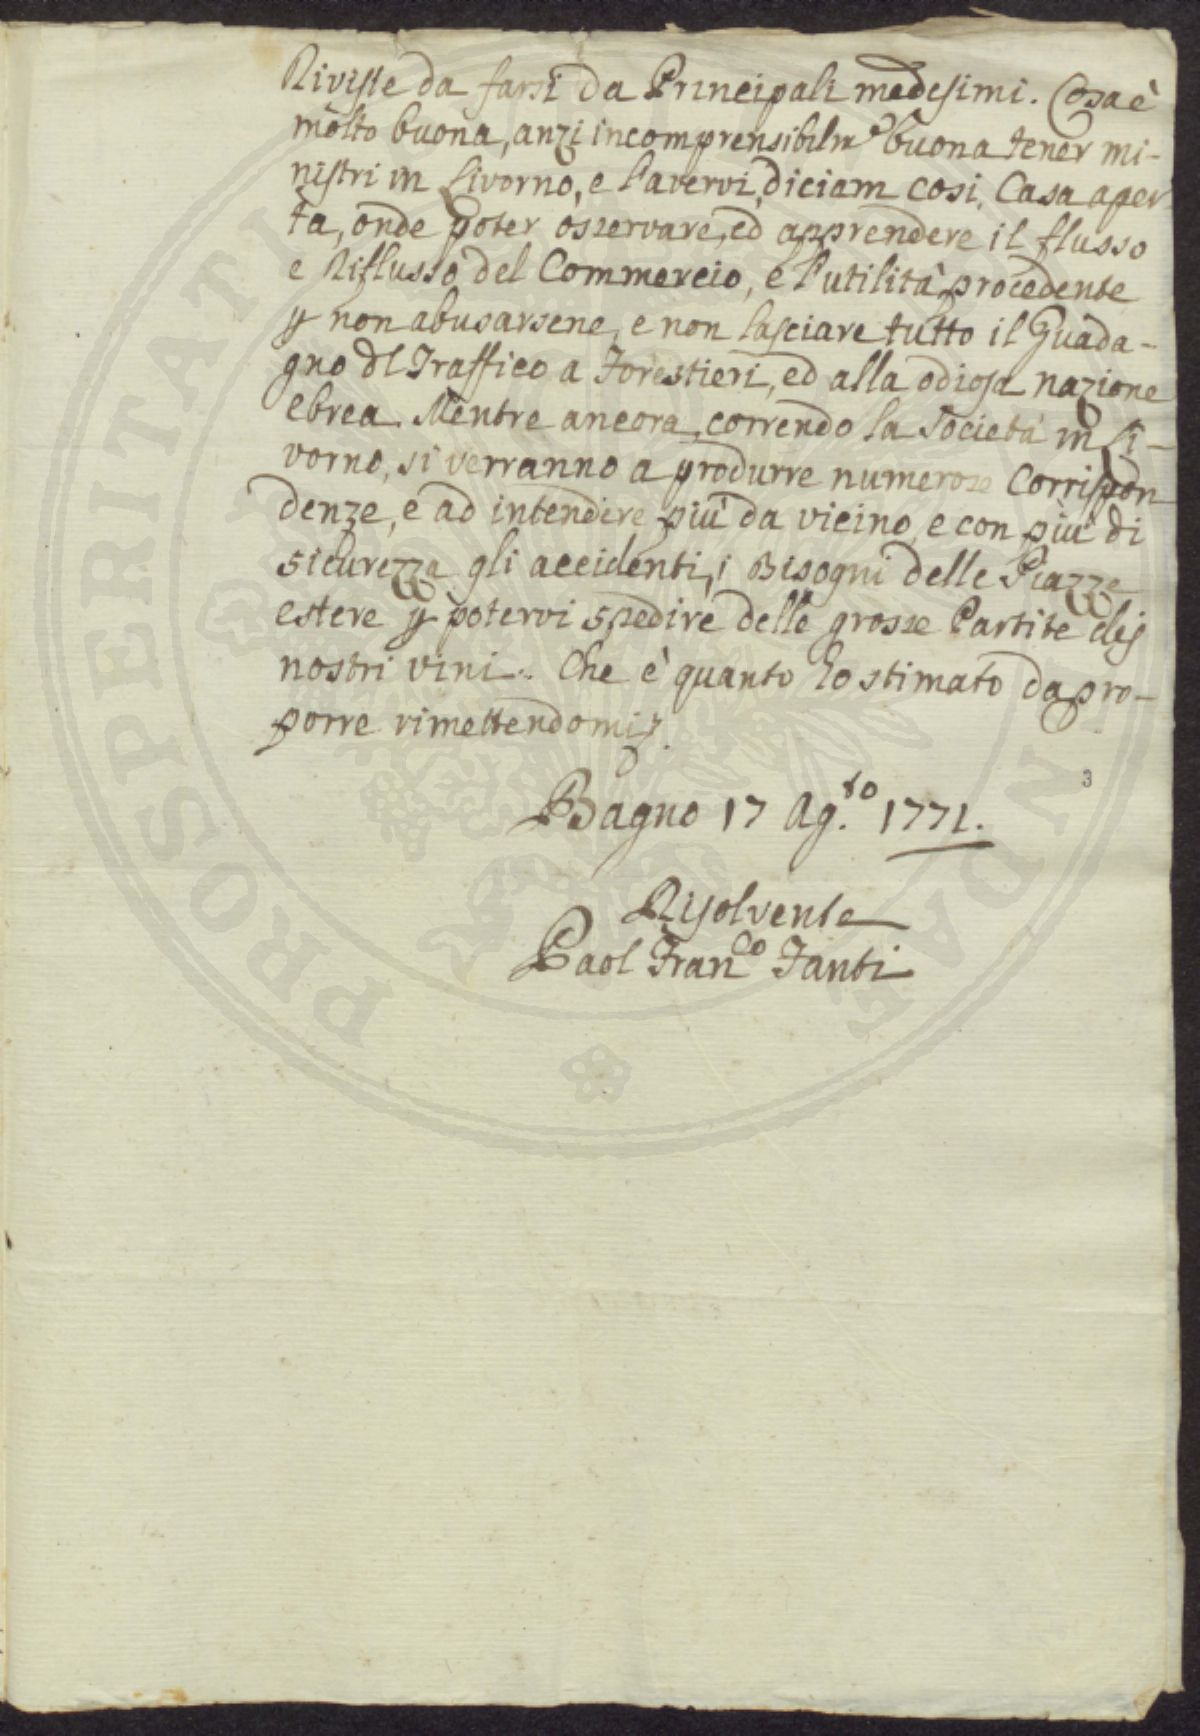 Riviste da farsi da Principali medesimi. Cosa è
molto buona, anzi incomprensibilm.e buona tener mi-
nistri in Livorno, e l'avervi, diciam così, Casa aper
ta, onde poter osservare, ed apprendere il flusso
e Riflusso del Commercio, e l'utilità procedente
p non abusarsene, e non lasciare tutto il Guada-
gno dl Traffico a Forestieri, ed alla odiosa nazione
ebrea. Mentre ancora, correndo la Società in Li-
vorno, si verranno a produrre numerose Corrispon
denze, e ad intendere più da vicino, e con più di
sicurezza gli accidenti, i Bisogni delle Piazze
estere p potervi spedire delle grosse Partite dej
nostri vini. Che è quanto ho stimato da pro-
porre rimettendomi
3
Bagno 17 Ag.to 1771.
Risolvente
Paol Fran.co Fanti
PROSPERITATI